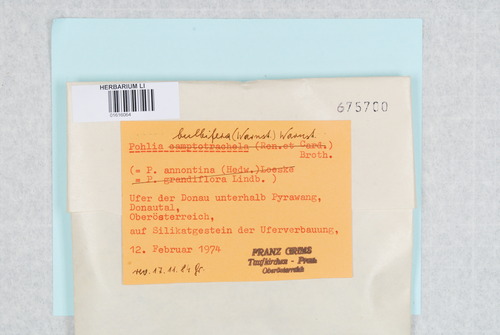 HERBARIUM LI
675700
bulbifera (Warnst.) Warnst.
Pohlia camptotrachela (Ren.et Card.)
Broth.
(= P. annontina (Hedw.)Loeske
= P. grandiflora Lindb. )
Ufer der Donau unterhalb Pyrawang,
Donautal,
Oberösterreich,
auf Silikatgestein der Uferverbauung,
12. Februar 1974
FRANZ GRIMS
Taufkirchen - Pram
Oberösterreich
rev. 17.11.84 Gr.